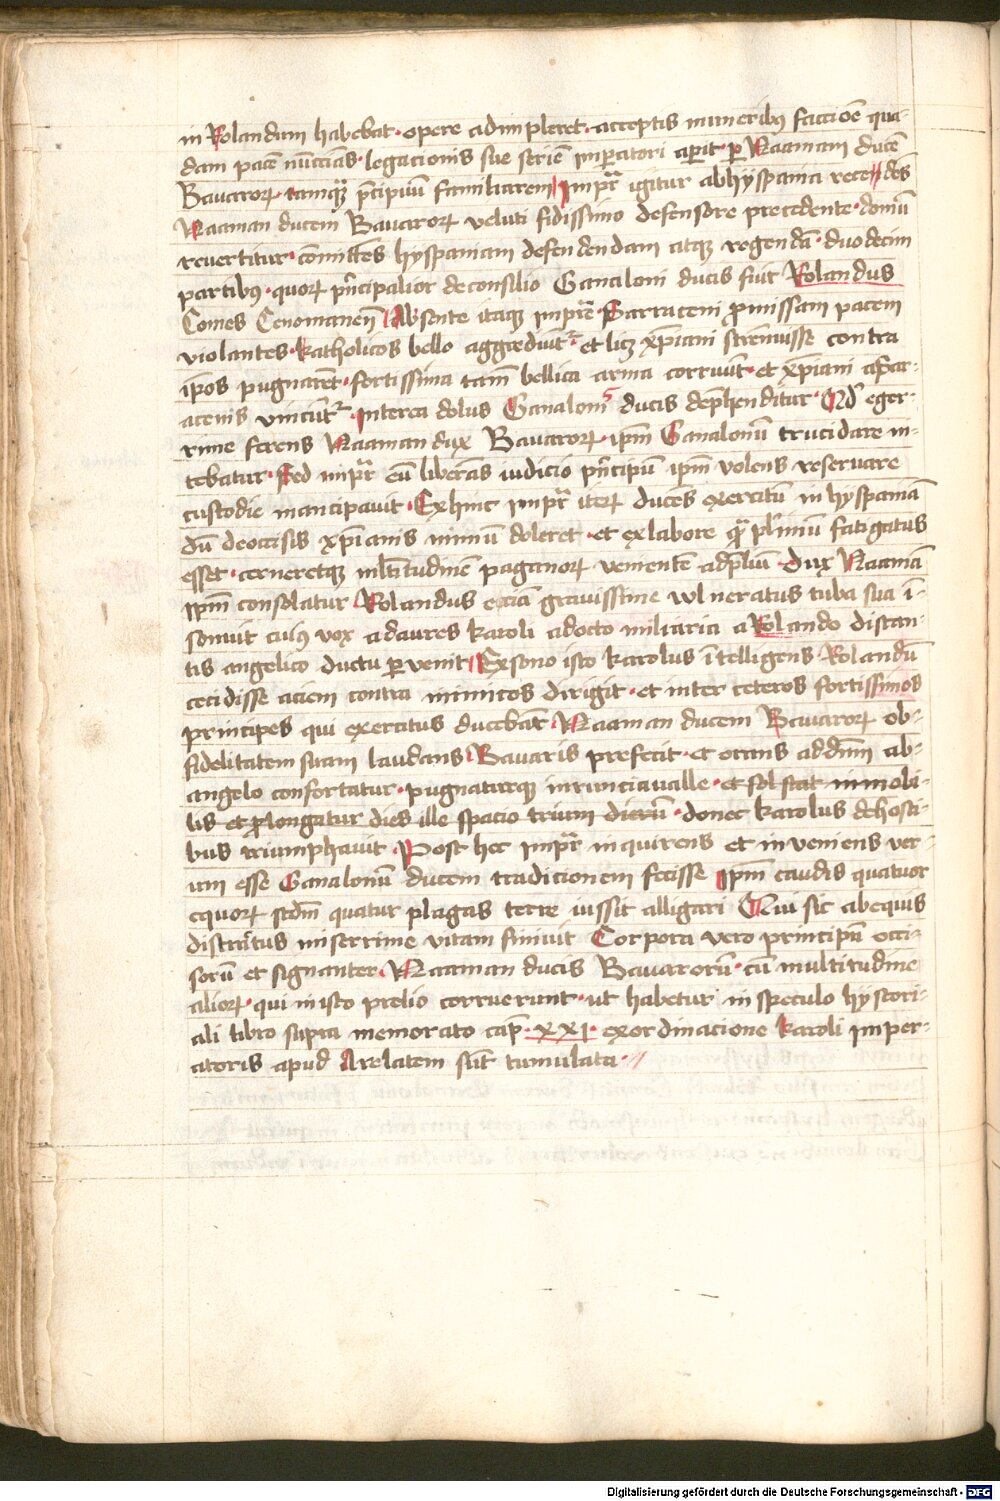 in Rolandum habebat · opere adimpleret · acceptis muneribꝰ faccioē qua-
dam pacē nūccias · legacionis sue seriē imꝑatori aꝑit · ꝑ Naaman ducē
Bavaroꝝ · tamqᷓ p̄cipuū familiarem imꝑr igitur ab hyspania recedēs
Naaman ducem Bavaroꝝ veluti fidissimo defensore precedente · domū
revertitur · cōmittēs hyspaniam defendendam atqꝫ regendā · duodecim
partibꝰ · quoꝝ pͥncipalior de consilio Ganaloni ducis fuit Rolandus
Comes Cenomaneñ Absente itaqꝫ impr̄e · Sarraceni ꝓmissam pacem
violantes · katholicos bello aggrediūtͬ et licꝫ xp̄iani strēnuisse contra
ip̄os pugnarēt · fortissima tam̄ bellica arma corruūt · et xp̄iani a sar-
acenis vincūtͬ · Interea dolus Ganalonis ducis dep̄henditur Qd̓ eger-
rime ferens Naaman dux Bavaroꝝ · ip̄m Ganalonū trucidare ni-
tebatur · Sed impr̄ eū liberās iudicio pͥncipū ip̄m volens reservare
custodie mancipavit · Exhinc impr̄ iteꝝ ducēs exercitū in hyspaniā
dū de occisis xp̄ianis nimiū doleret · et ex labore qᷓ plͥmū fatigatus
esset · cerneretqꝫ ml̄titudinē paganoꝝ venientē ad p̄liū · dux Naamā
ip̄m consolatur Rolandus eciā gravissime vulneratus tuba sua ī-
sonuit cuiꝰ vox ad aures karoli ad octo miliaria a Rolando distan-
tis angelico ductu ꝑvenit Ex sono isto karolus ītelligens Rolandū
cecidisse aciem contra inimicos dirigit · et inter ceteros fortissimos
principes qui exercitus ducebāt · Naaman ducem Bavaroꝝ ob-
fidelitatem suam laudans Bavaris prefecit · et orans ad dn̄m ab-
angelo confortatur · pugnaturqꝫ in runciavalle · et sol stat inmobi-
lis et ꝓlongatur dies ille spacio trium dierū · donec karolus de hosti-
bus triumphavit · Post hec impr̄ inquirens et inveniens ver-
um esse Ganalonū ducem tradicionem fecisse ip̄m caudis quatuor
equoꝝ scd̄m quatur plagas terre iussit alligari Qui sic ab equis
distractus miserrime vitam finivit Corpora vero principū occi-
sorū et signanter · Naaman ducis Bavarorū · cū multitudine
alioꝝ · qui in isto prelio corruerunt · ut habetur in speculo hystori-
ali libro supra memorato cap̄ · xxi · ex ordinacione karoli imper-
atoris apud Arelatem sūt tumulata ·
Digitalisierung gefördert durch die Deutsche Forschungsgemeinschaft - DFG